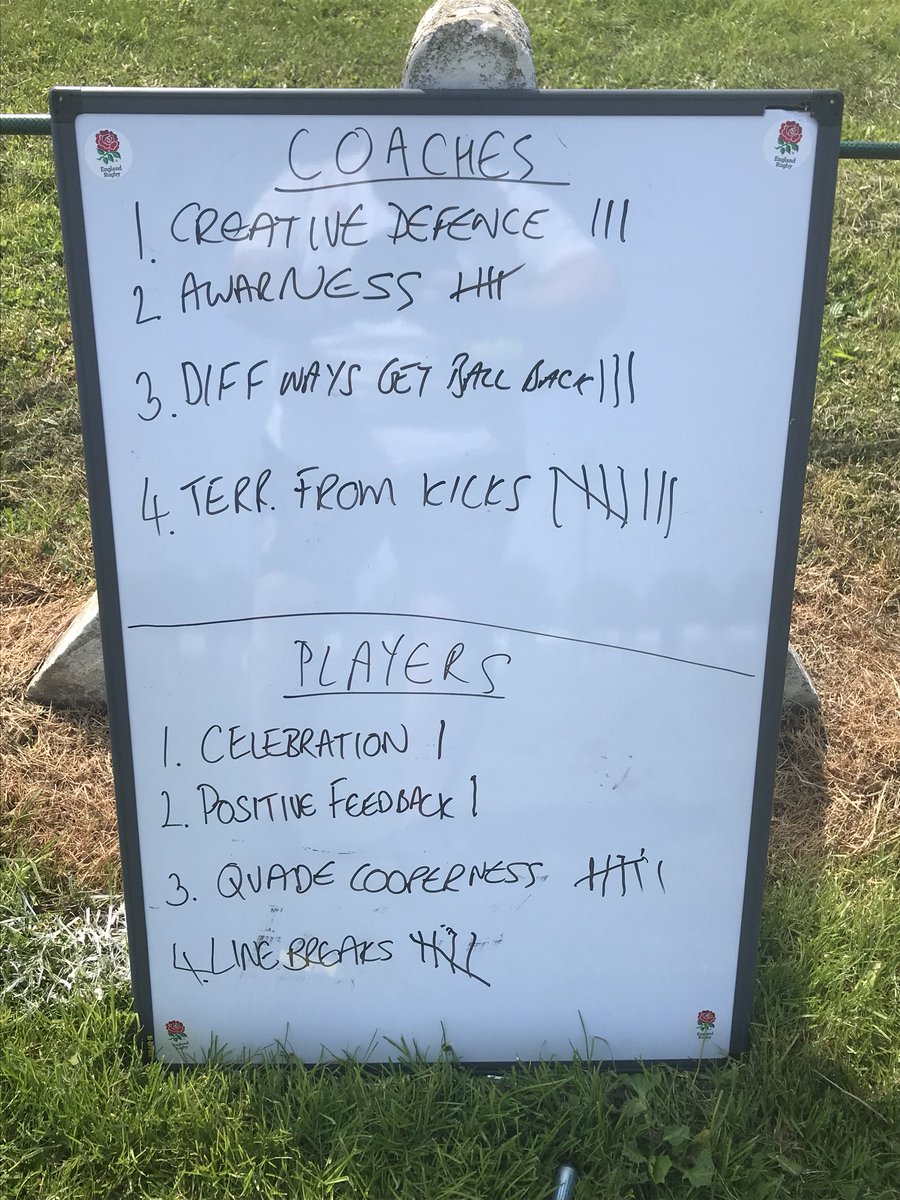 England Rugby
England Rugby
COACHES
1. CREATIVE DEFENCE |||
2. AWARNESS ||||
3. DIFF WAYS GET BALL BACK |||
4. TERR. FROM KICKS |||| |||
PLAYERS
1. CELEBRATION |
2. POSITIVE FEEDBACK |
3. QUADE COOPERNESS |||| |
4. LINE BREAKS ||||
England Rugby
England Rugby